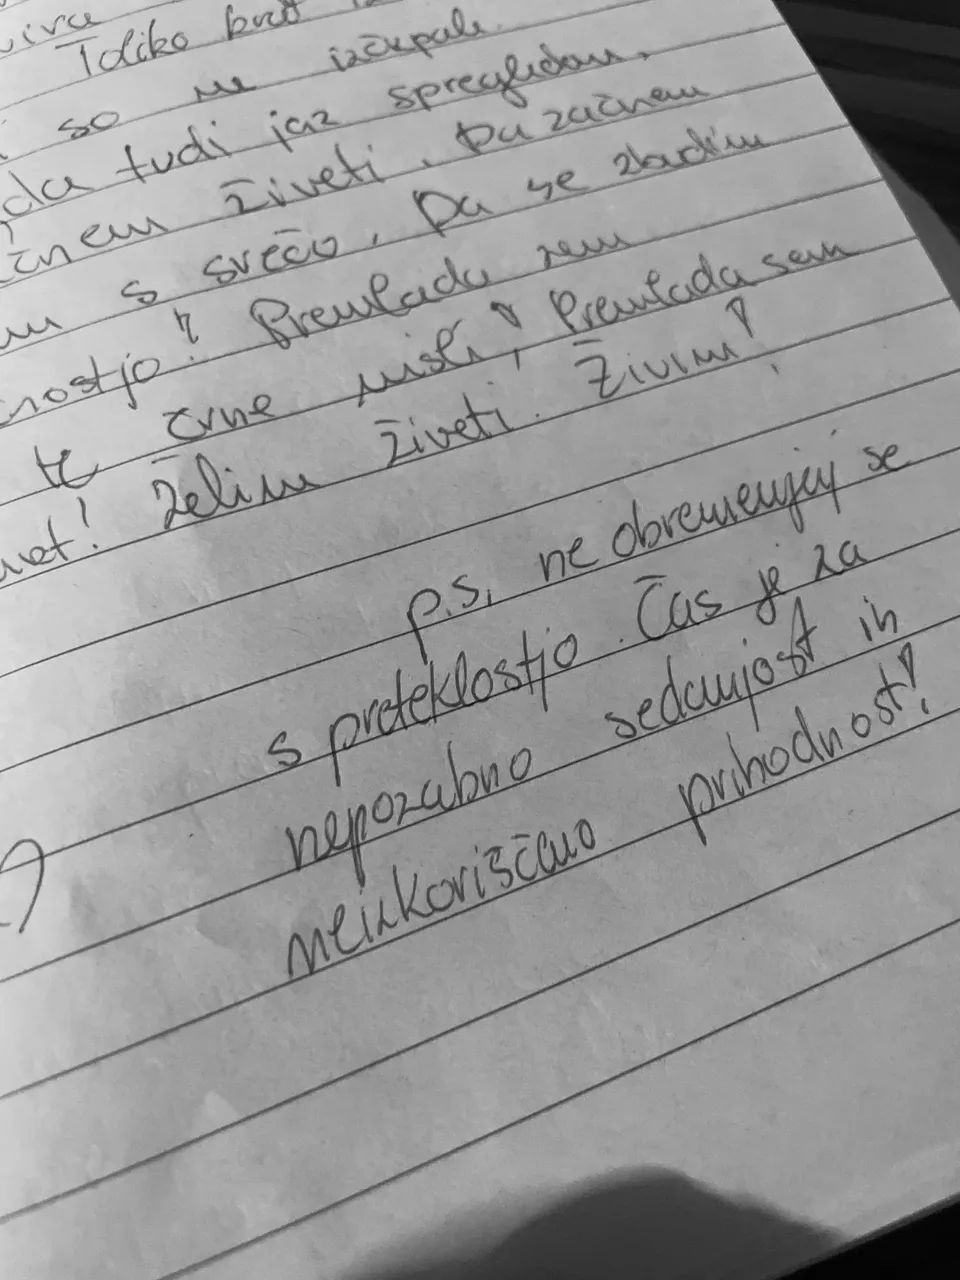 Toliko krat
so me izčrpali.
da tudi jaz spregledam.
živeti. Da začnem
s svečo. Da se zbudim
nostjo? Premlada sem
te črne misli! Premlada sem
Želim živeti. Živim!
p.s. ne obremenjuj se
s preteklostjo. Čas je za
nepozabno sedanjost in
neizkoriščeno prihodnost!